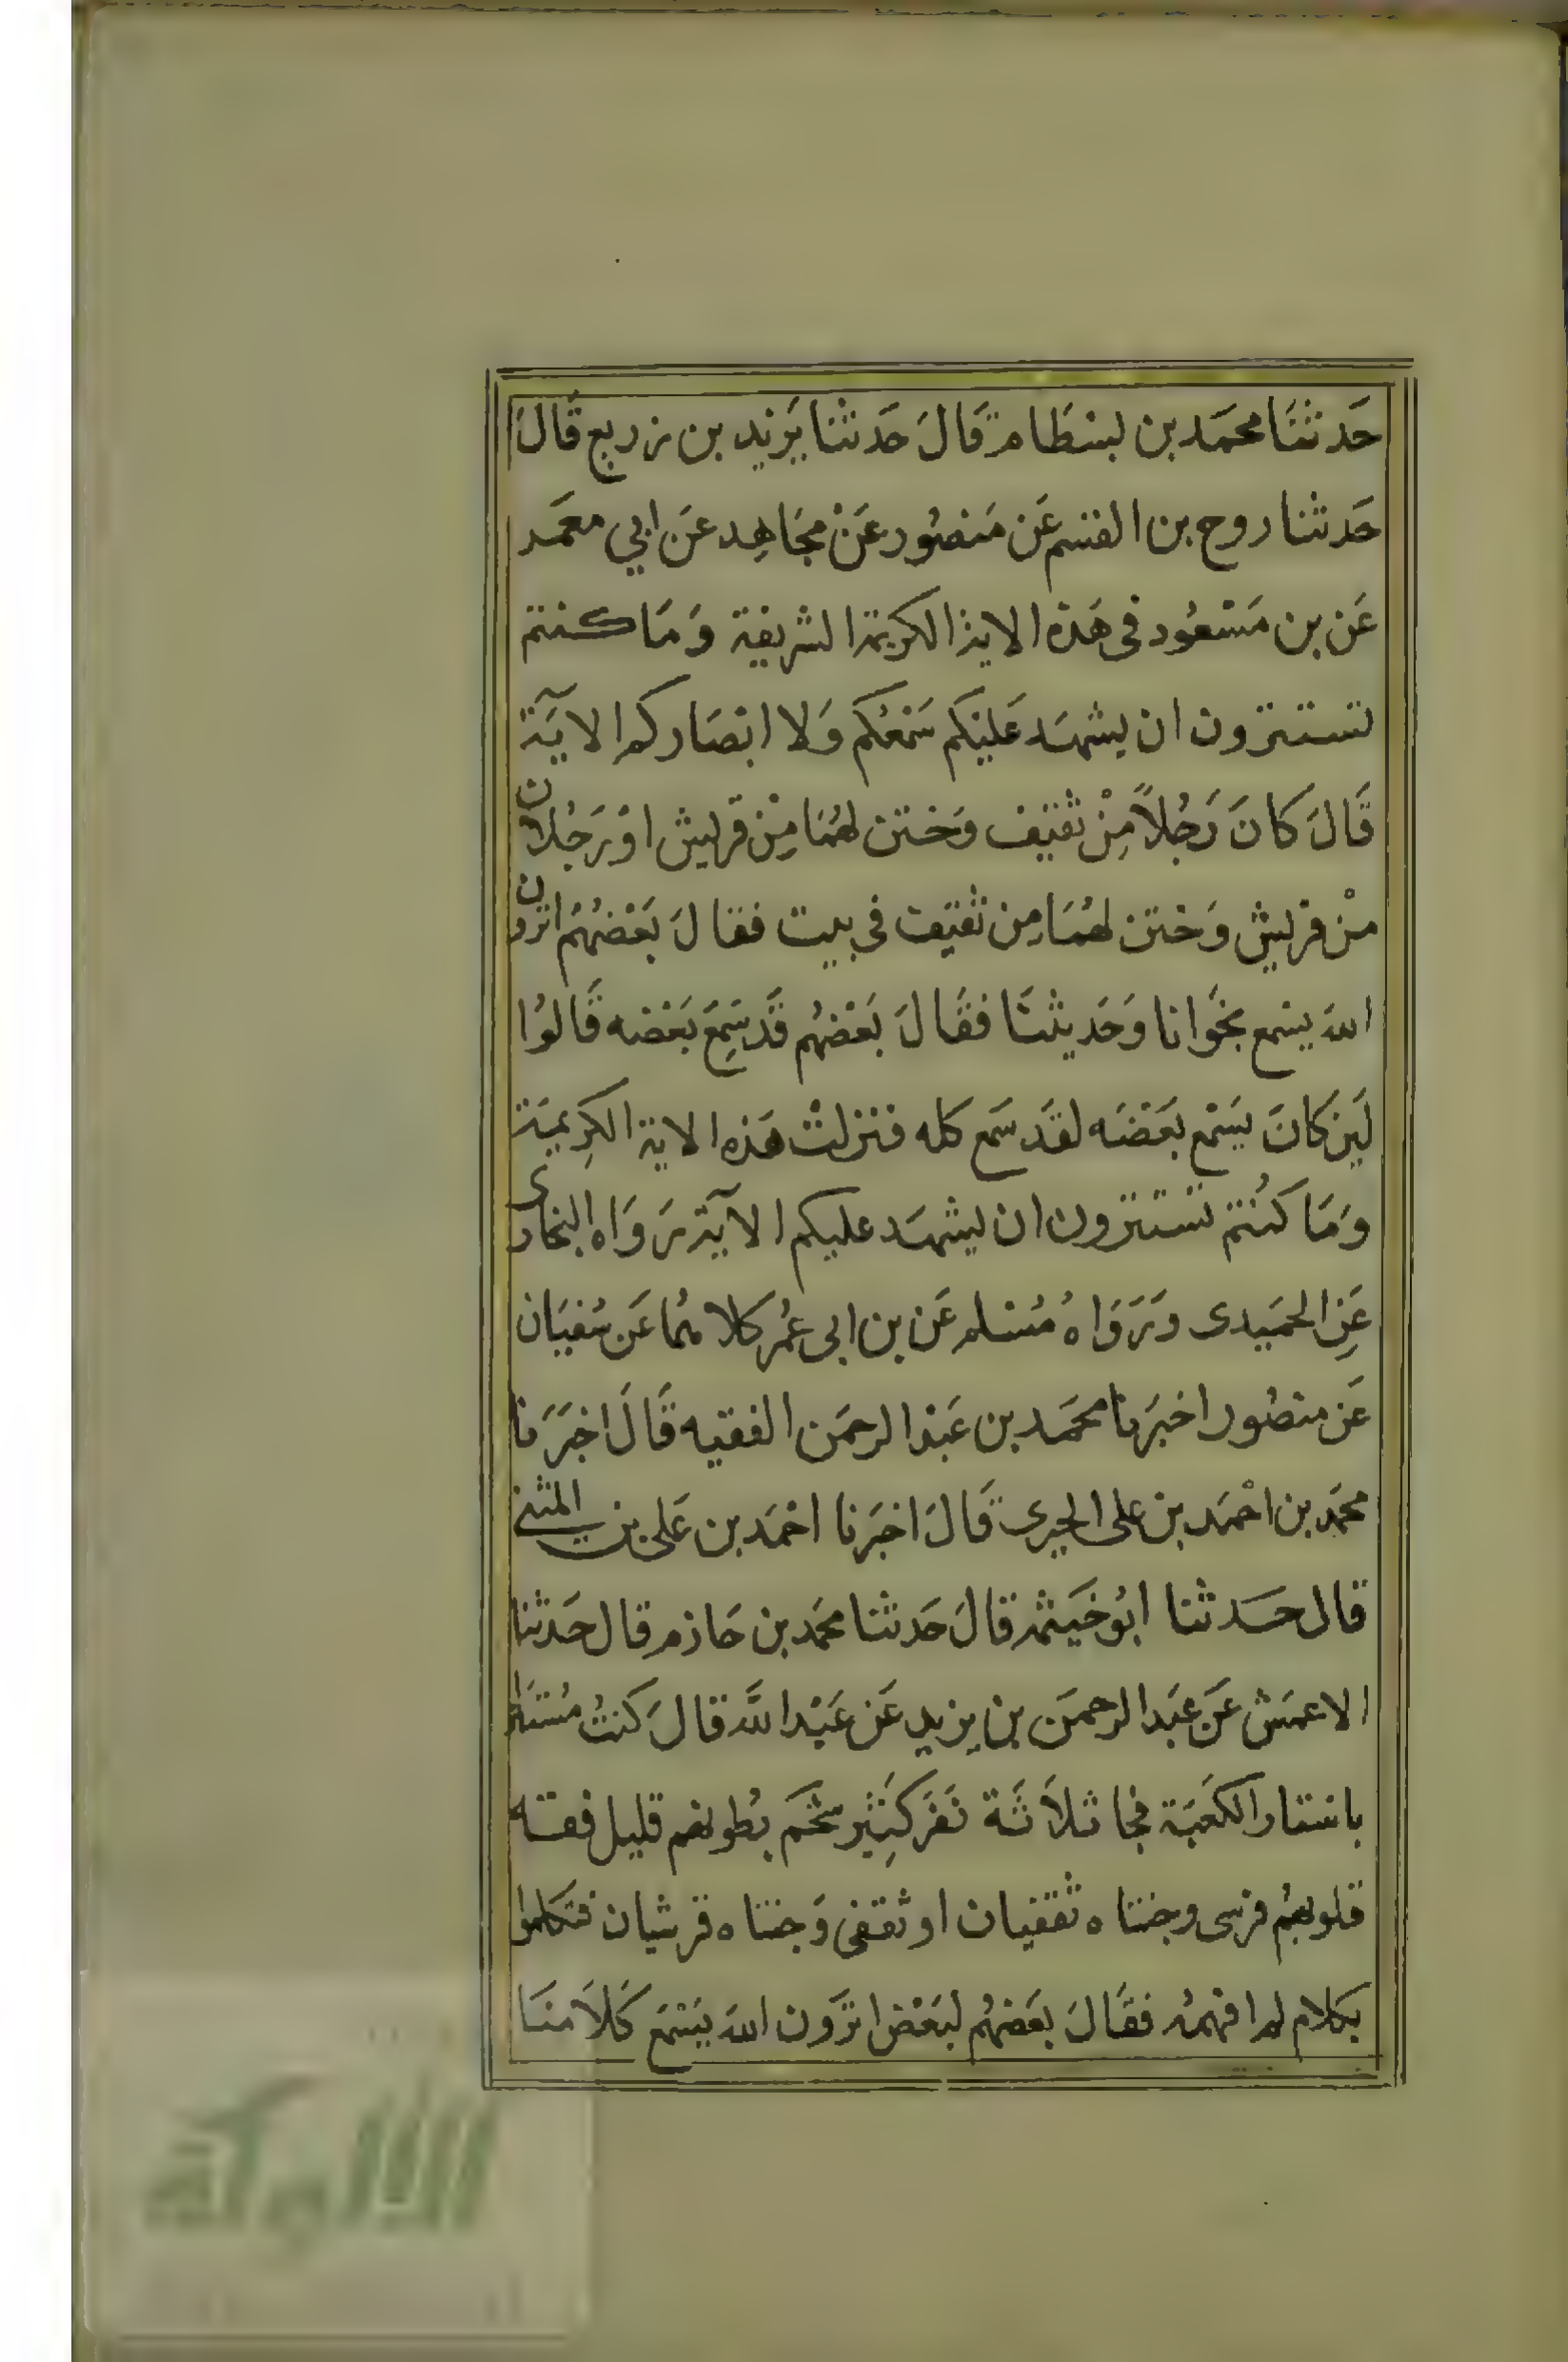 حَدثنَا محمَد بن لبسْطَام قَالَ حَدثنا يَزيد بن زريع قَالَ
حَدثنا روح بن القسم عَن مَنصُور عَنْ مجَاهِد عَن ابي معمَر
عَن بن مَسْعُود فى هَذه الاية الكريمة الشريفة وَمَا كنتم
تستترون ان يشهَد عَليْكم سَمْعُكم وَلا ابْصَاركم الايَة
قَالَ كانَ رَجُلاً مِنْ ثقيف وَختن لهُمَا مِنْ قريش اوْ رَجُلان
منْ قريش وَختن لهُمَا مِن ثقيف فى بيت فقالَ بَعْضهُمْ اترون
الله يسمع نجْوانا وَحَديثنَا فقَالَ بَعْضهُم قَد سَمِعَ بَعْضه قَالوُا
لَين كَانَ يَسْمَع بَعَضَه لقَد سَمع كله فنزلتْ هَذه الاية الكرِيمَة
وَمَا كنُتم تسْتترون ان يشهَد عليكم الآيَة رَوَاه البخارى
عَنِ الحمَيدى وَرَوَاهُ مُسْلم عَن بن ابى عُمر كلاهُما عَن سُفيَان
عَن منصُور اخبَرنا محمَد بن عَبْد الرحمَن الفقيه قَالَ اخبَرَنا
محمَد بن احْمَد بن على الحيرى قَالَ اخبَرنا احْمَد بن عَلى بن المثنى
قال حَدثنا ابُو خَيثمة قالَ حَدثنا محمَد بن حَازم قال حَدثنا
الاعمَش عَن عَبَد الرحمَن بن يزيد عَن عَبْد اللَّه قالَ كنتُ مُسْتترا
باسْتار الكعبَة فجا ثلاَثَة نَفَر كثِير شحْم بُطونهم قليل فقه
قلوبهُم قرشى وختناه ثقفيان او ثقفى وَختناه قرشيان فتكلموا
بكلام لم افهمهُ فقَالَ بَعَضهُم لبَعْض اترَون الله يَسْمَع كَلاَمنَا
الألوكة